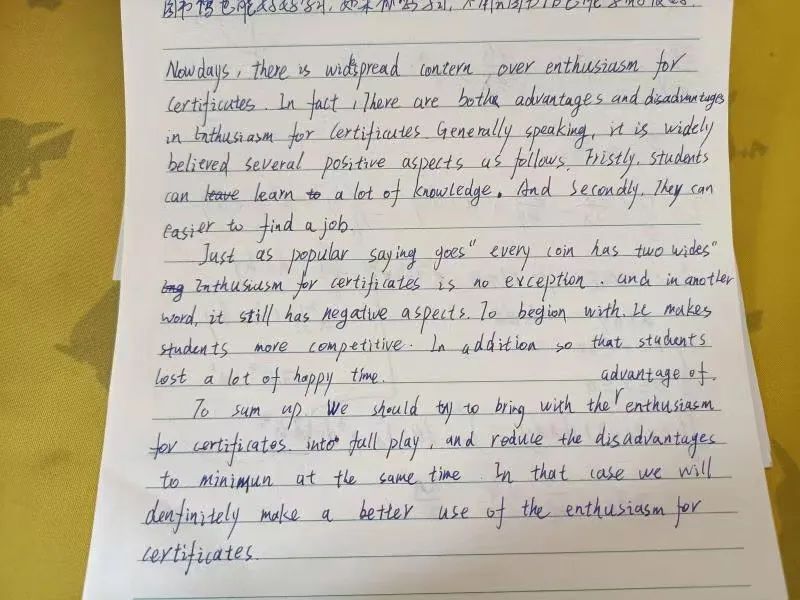 Nowdays, there is widespread contern over enthusiasm for
certificates. In fact, There are bothe advantages and disadvantages
in Enthusiasm for Certificates Generally speaking, it is widely
believed several positive aspects as follows. Fristly. students
can leave learn to a lot of knowledge. And Secondly. They can
easier to find a job.
Just as popular saying goes" every coin has two wides"
Eng Enthusiusm for certificates is no exception. and in another
word, it still has negative aspects. To begion with. It makes
students more competitive. In addition so that students
lost a lot of happy time. advantage of.
To sum up We should try to bring with the enthusiasm
for certificates. into full play, and reduce the disadvantages
to minimun at the same time. In that case we will
denfinitely make a better use of the enthusiasm for
certificates.